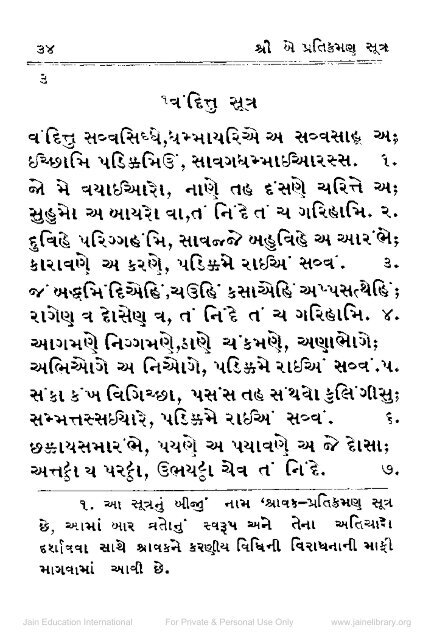 ૩૪ શ્રી બે પ્રતિક્રમણ સૂત્ર
૩
૧વંદિત્તુ સૂત્ર
વંદિત્તુ સવ્વસિધ્ધે,ધમ્માયરિએ અ સવ્વસાહૂ અ;
ઇચ્છામિ પડિક્કમિઉં, સાવગધમ્માઇઆરસ્સ. ૧.
જો મે વયાઇઆરો, નાણે તહ દંસણે ચરિત્તે અ;
સુહુમો અ બાયરો વા,તં નિંદે તં ચ ગરિહામિ. ૨.
દુવિહે પરિગ્ગહંમિ, સાવજ્જે બહુવિહે અ આરંભે;
કારાવણે અ કરણે, પડિક્કમે રાઇઅં સવ્વં. ૩.
જં બદ્ધમિંદિએહિં,ચઉહિં કસાએહિં અપ્પસત્થેહિં;
રાગેણ વ દોસેણ વ, તં નિંદે તં ચ ગરિહામિ. ૪.
આગમણે નિગ્ગમણે,ઠાણે ચંકમણે, અણાભોગે;
અભિઓગે અ નિઓગે, પડિક્કમે રાઇઅં સવ્વં.૫.
સંકા કંખ વિગિચ્છા, પસંસ તહ સંથવો કુલિંગીસુ;
સમ્મત્તસ્સઇયારે, પડિક્કમે રાઇઅં સવ્વં. ૬.
છક્કાયસમારંભે, પયણે અ પયાવણે અ જે દોસા;
અત્તટ્ઠા ય પરટ્ઠા, ઉભયટ્ઠા ચેવ તં નિંદે. ૭.
૧. આ સૂત્રનું બીજું નામ ‘શ્રાવક-પ્રતિક્રમણ સૂત્ર
છે, આમાં બાર વ્રતોનું સ્વરૂપ અને તેના અતિચારો
દર્શાવવા સાથે શ્રાવકને કરણીય વિધિની વિરાધનાની માફી
માગવામાં આવી છે.
Jain Education International For Private & Personal Use Only www.jainelibrary.org